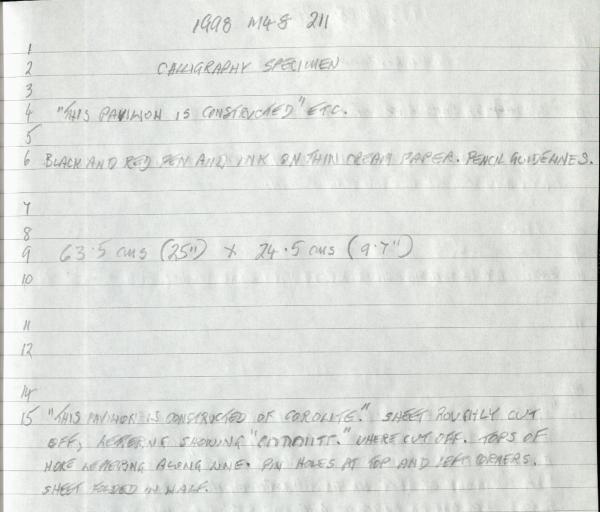 1998 M48 211
1
2 CALLIGRAPHY SPECIMEN
3
4 "THIS PAVILION IS CONSTRUCTED" ETC.
5
6 BLACK AND RED PEN AND INK ON THIN CREAM PAPER. PENCIL GUIDELINES.
7
8
9 63.5 cms (25") X 24.5 cms (9.7")
10
11
12
14
15 "THIS PAVILION IS CONSTRUCTED OF COROLITE." SHEET ROUGHLY CUT
OFF, LETTERING SHOWING WHERE CUT OFF. TOPS OF
MORE LETTERING ALONG LINE. PIN HOLES AT TOP AND LEFT CORNERS.
SHEET FOLDED IN HALF.